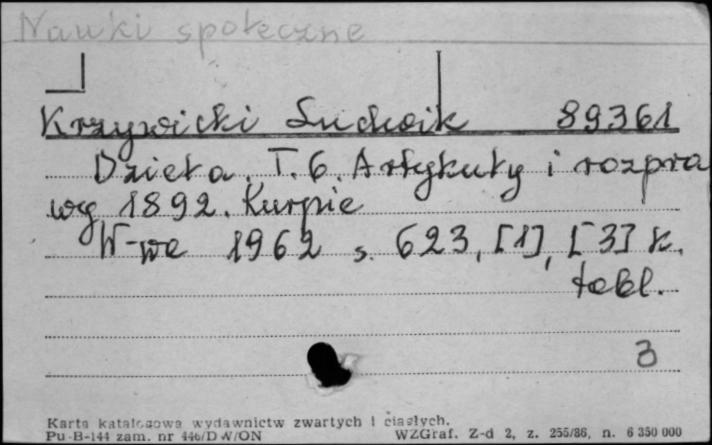 Nauki społeczne
Krzywicki Ludwik 89361
Dzieła. T. 6. Artykuły i rozpra
wy 1892. Kurpie
W-wa 1962 s. 623, [1], [3] k.
tabl.
3
Karta katalogowa wydawnictw zwartych i ciągłych.
Pu-B-144 zam. nr 446/DW/ON WZGraf. Z-d 2, z. 255/86, n. 6 350 000